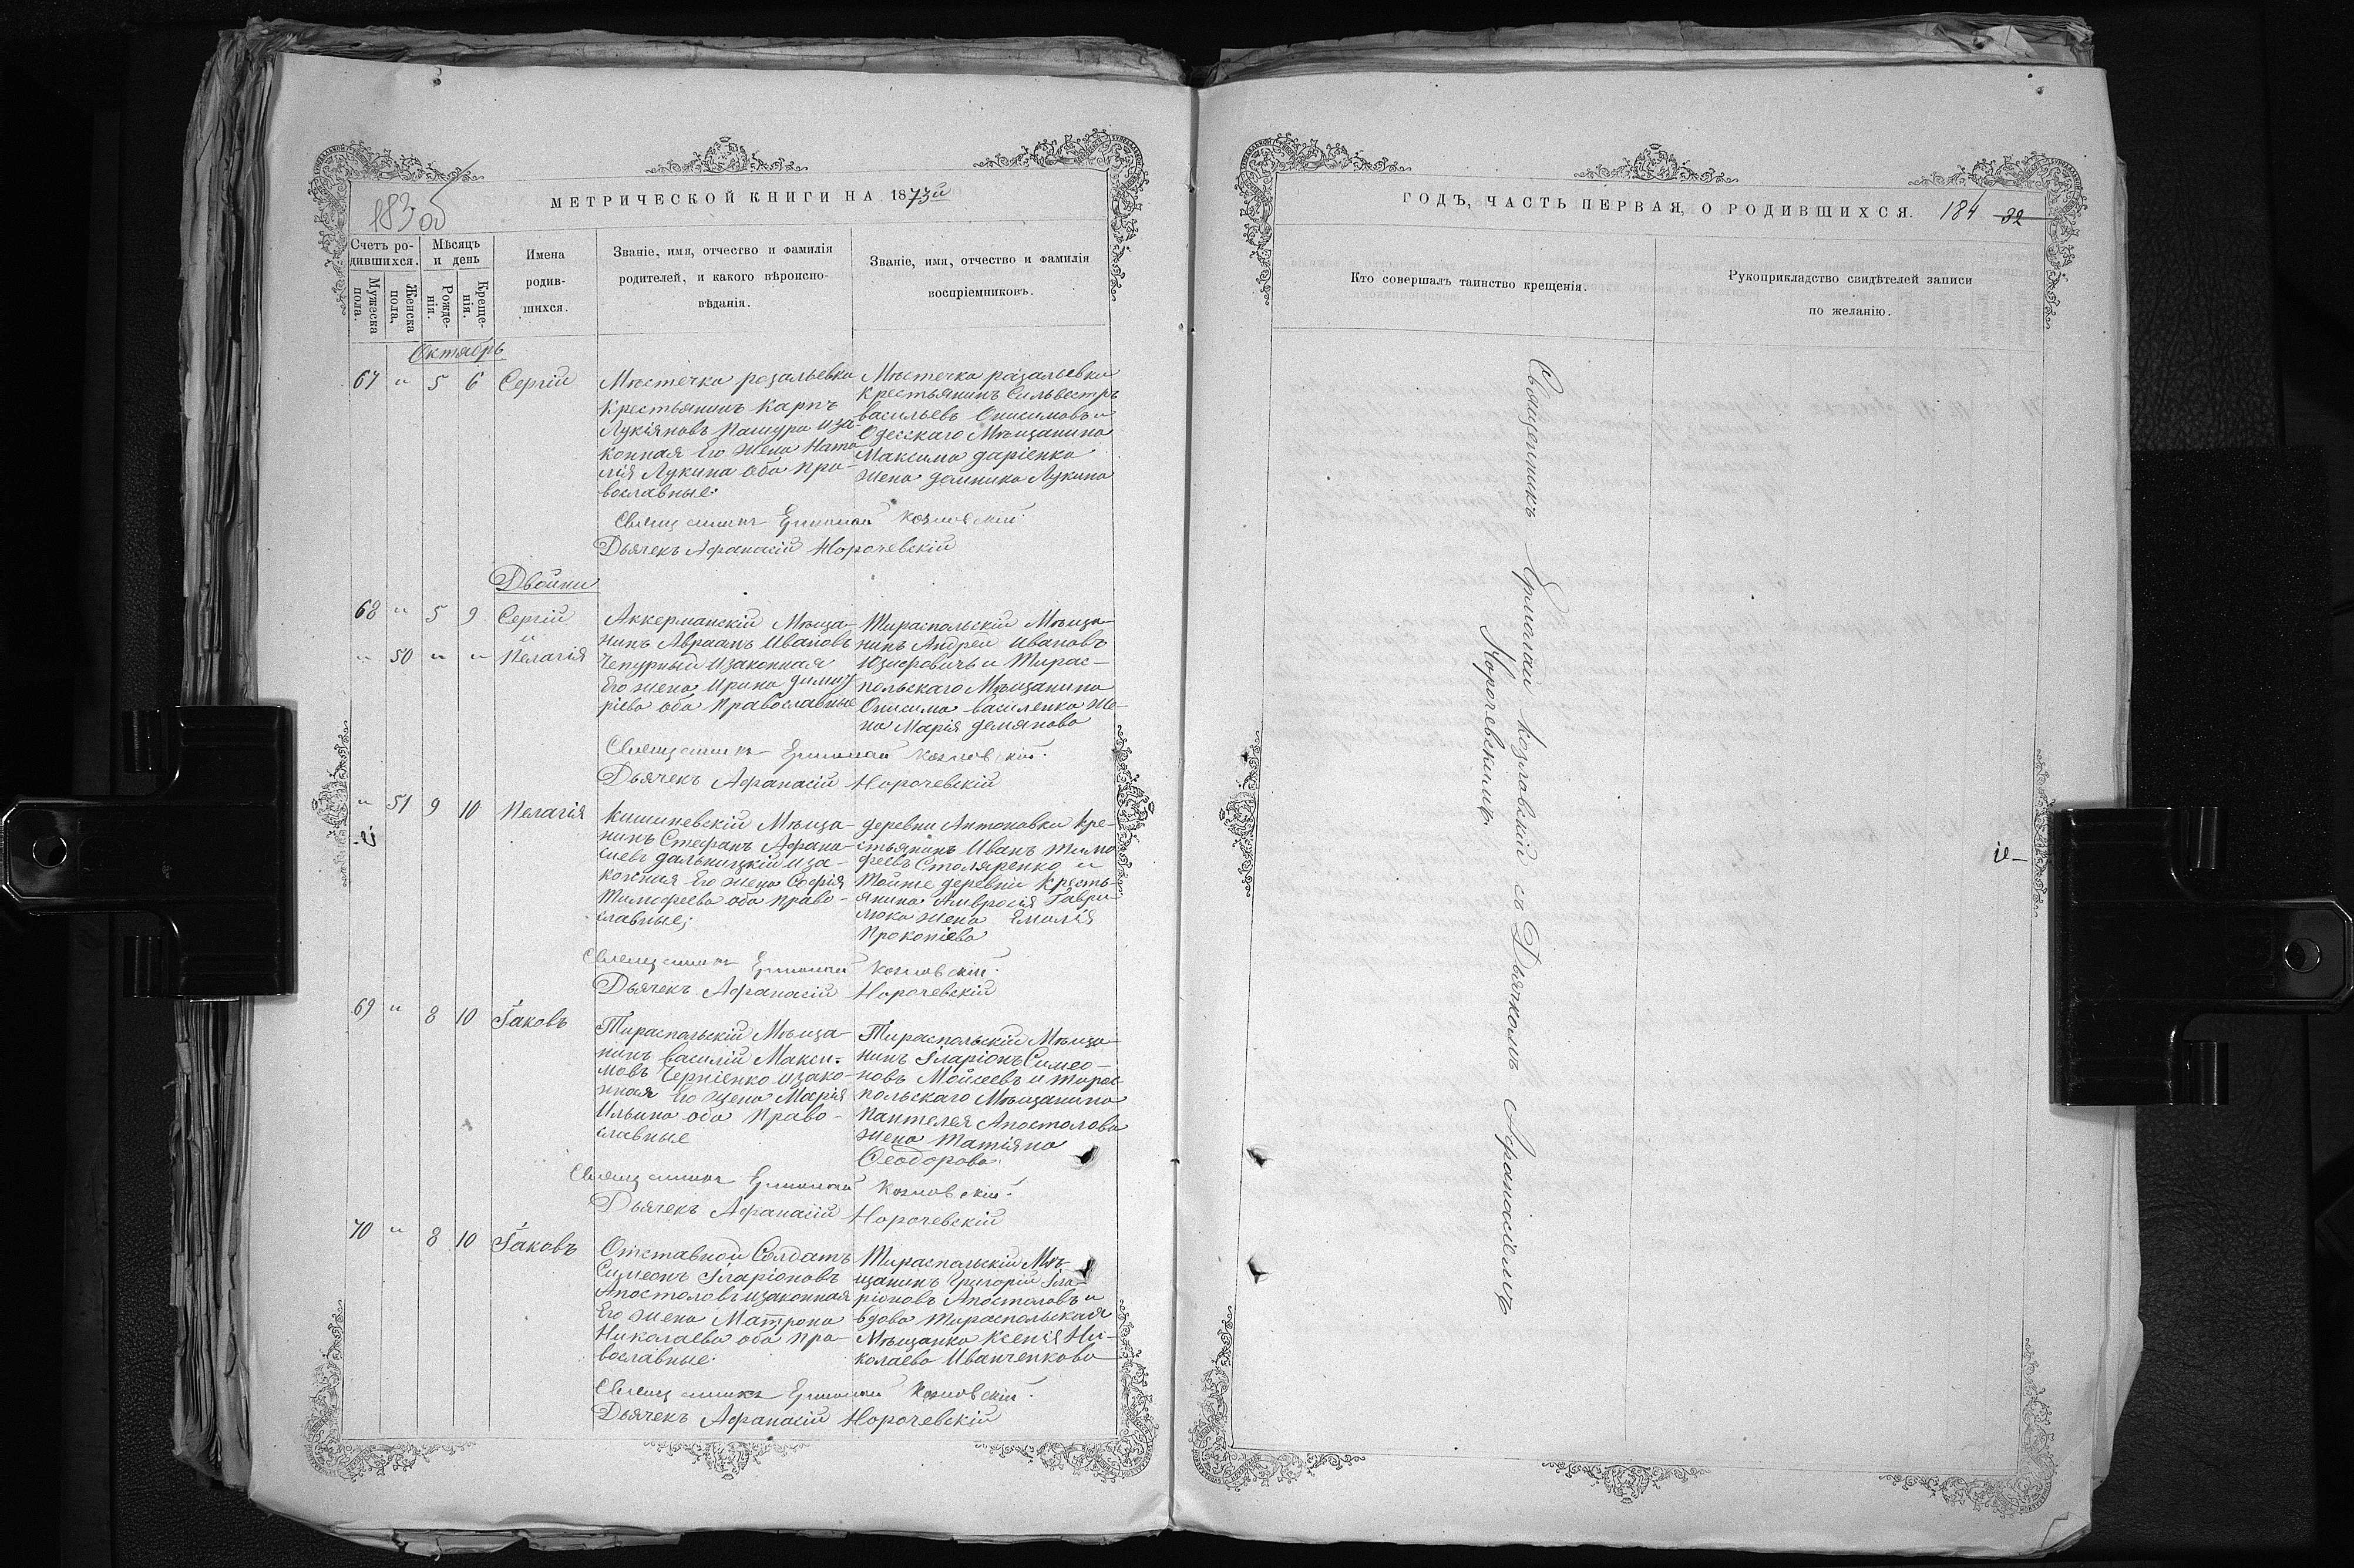 183 об
МЕТРИЧЕСКОЙ КНИГИ НА 1873й
Счетъ ро-
дившихся.
Мѣсяцъ
и день
Мужеска
пола.
Женска
пола,
Рожде-
нія.
Креще-
нія.
Имена
родив-
шихся.
Званіе, имя, отчество и фамилія
родителей, и какого вѣроиспо-
вѣданія.
Званіе, имя, отчество и фамилія
воспріемниковъ.
Октябрь
67 " 5 6 Сергій
Мѣстечка розальевка
Крестьянинъ Карпъ
Лукіяновъ Пашура иза-
конная Его жена Ната-
лія Лукина оба пра-
вославные.
Мѣстечка разальевки
Крестьянинъ Сильвестръ
васильевъ Онисимовъ и
Одесскаго Мѣщанина
Максима даріенка
жена домника Лукина
Священникъ Ермолай Козловскій.
Дьячекъ Афанасій Норочевскій
Двойни
68 " 5 9 Сергій
"
" 50 " " Пелагія
Аккерманскій Мѣща-
нинъ Авраамъ Ивановъ
Чепурный изаконная
Его жена Ирина димит
ріева оба Православные
Тираспольскій Мѣща-
нинъ Андрей Ивановъ
Юзефовичъ и Тирас-
польскаго Мѣщанина
Онисима василенка же-
на Марія демянова
Священникъ Ермолай Козловскій.
Дьячекъ Афанасій Норочевскій
" 51 9 10 Пелагія
Кишиневскій Мѣща-
нинъ Стефанъ Афана-
сіевъ дальницкій иза-
конная Его жена Софія
Тимофеева оба право-
славные;
деревни Антоновки Кре-
стьянинъ Иванъ Тимо
феевъ Столяренко и
Тойже деревни Кресть-
янина Амвросія Гаври-
люка жена Емилія
Прокопіева
Священникъ Ермолай Козловскій.
Дьячекъ Афанасій Норочевскій
69 " 8 10 Іаковъ
Тираспольскій Мѣща-
нинъ василій Макси-
мовъ Черніенко изако-
нная Его жена Марія
Ильина оба Право-
славные
Тираспольскій Мѣща-
нинъ Іларіонъ Симео-
новъ Мойсеевъ и тирас-
польскаго Мѣщанина
Пантелея Апостолова
жена Татіяна
Ѳеодорова.
Священникъ Ермолай Козловскій.
Дьячекъ Афанасій Норочевскій
70 " 8 10 Іаковъ
Отставной Солдатъ
Симеонъ Іларіоновъ
Апостоловъ изаконная
Его жена Матрона
Николаева оба пра-
вославные.
Тираспольскій Мѣ-
щанинъ Григорій Іла-
ріоновъ Апостоловъ и
вдова тираспольская
Мѣщанка Ксенія Ни-
колаева Иванченкова
Священникъ Ермолай Козловскій.
Дьячекъ Афанасій Норочевскій
ГОДЪ, ЧАСТЬ ПЕРВАЯ, О РОДИВШИХСЯ. 184 32
Кто совершалъ таинство крещенія.
Рукоприкладство свидѣтелей записи
по желанію.
Священникъ Ермолай Козловскій съ Дьячкомъ Афанасіемъ
Норочевскимъ.